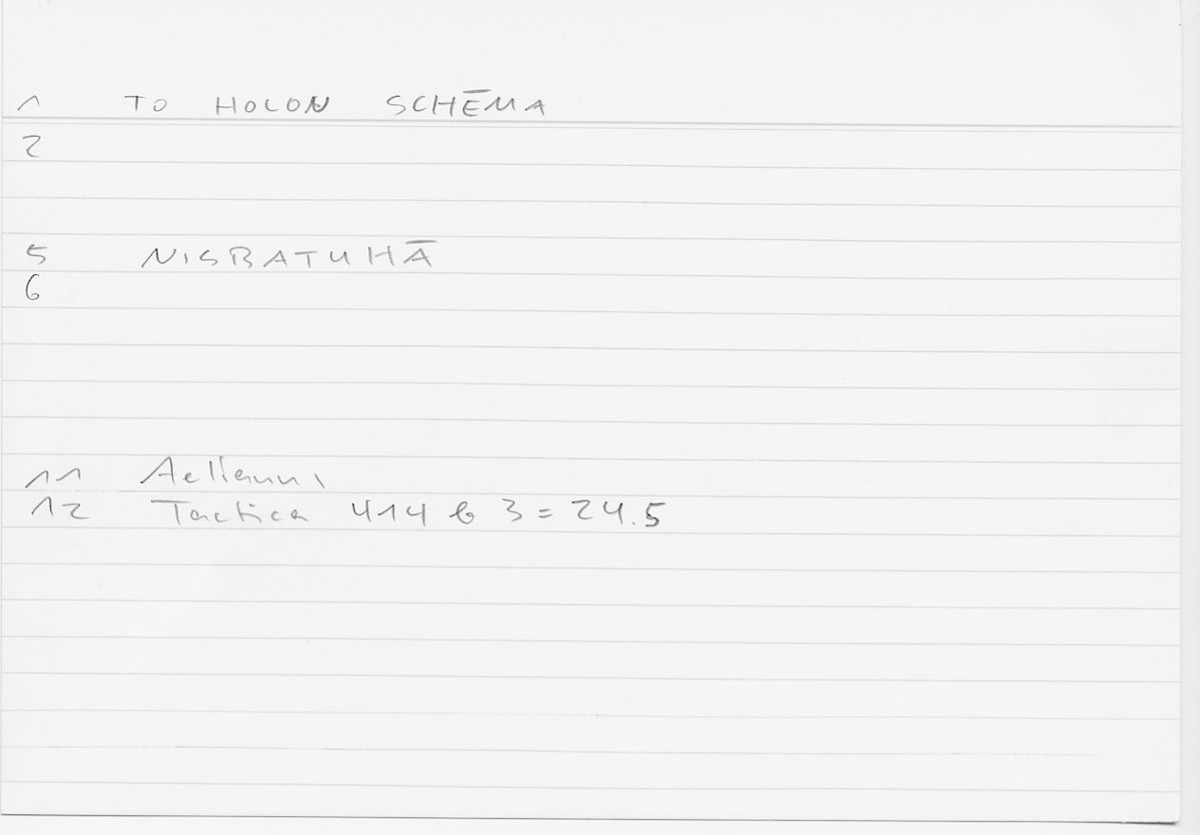 1 TO HOLON SCHĒMA
2
5 NISBATUHĀ
6
11 Aeliani
12 Tactica 414 b 3 = 24.5